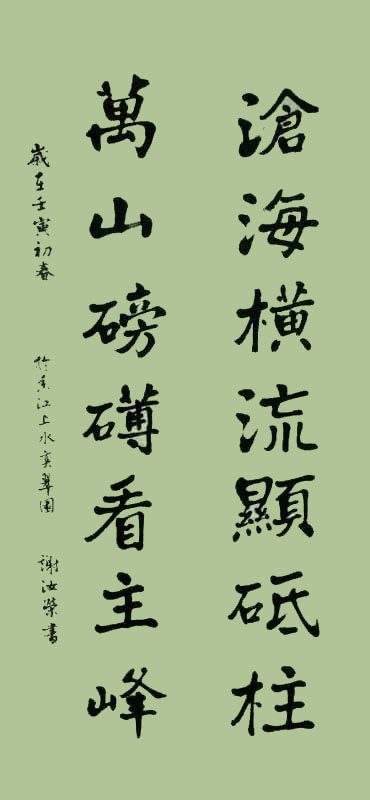 滄海橫流顯砥柱
萬山磅礡看主峰
歲在壬寅初春 於香江上水奕翠園 謝汝榮書